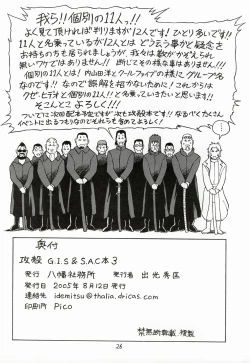 我ら!!個別の11人っ!!
よく見て頂ければ判りますが12人です!ひとり多いです!!
11人と名乗っているが12人とは どう云う事かと疑念を
お持ちの方も居られましょうが、我々は数がかぞえられ
無いワケではありません!! 断じてその様な事はありません!!!
個別の11人とは!内山田洋とクールファイブの様にグループ名
なのです!! なので誤解を招かないために!これからは
クゼ・ヒデオと個別の11人!!と名乗っていきたいと思います!!
そんなことよろしく!!!
ついでに次回配本予定ですが次も攻殻本です!!なるべくたくさん
イベントに出るつもりなのでそれらも含めてよろしく!
奥付
攻殻 G.I.S & S.A.C 本3
発行 八幡社務所 発行者 出光秀匡
発行日 2005年8月12日発行
連絡先 idemitsu@thalia.dricas.com
印刷所 Pico
禁無断転載、複製
26